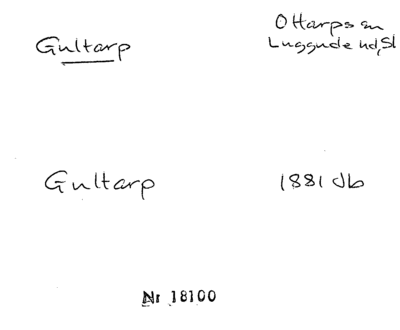 Gultarp
Ottarps sn
Luggude hd, Sk
Gultarp
1881 Jb
Nr 18100